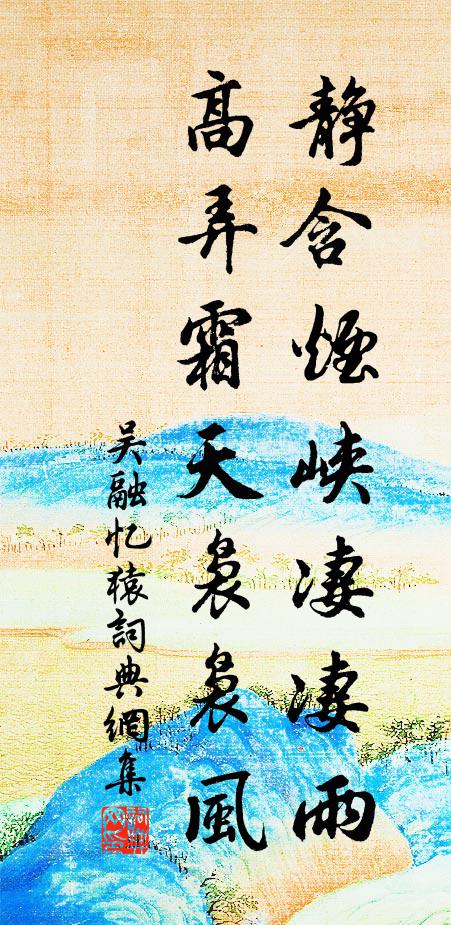 静含煙峡凄凄雨
高弄霜天裊裊風
吴融忆猿詞典網集